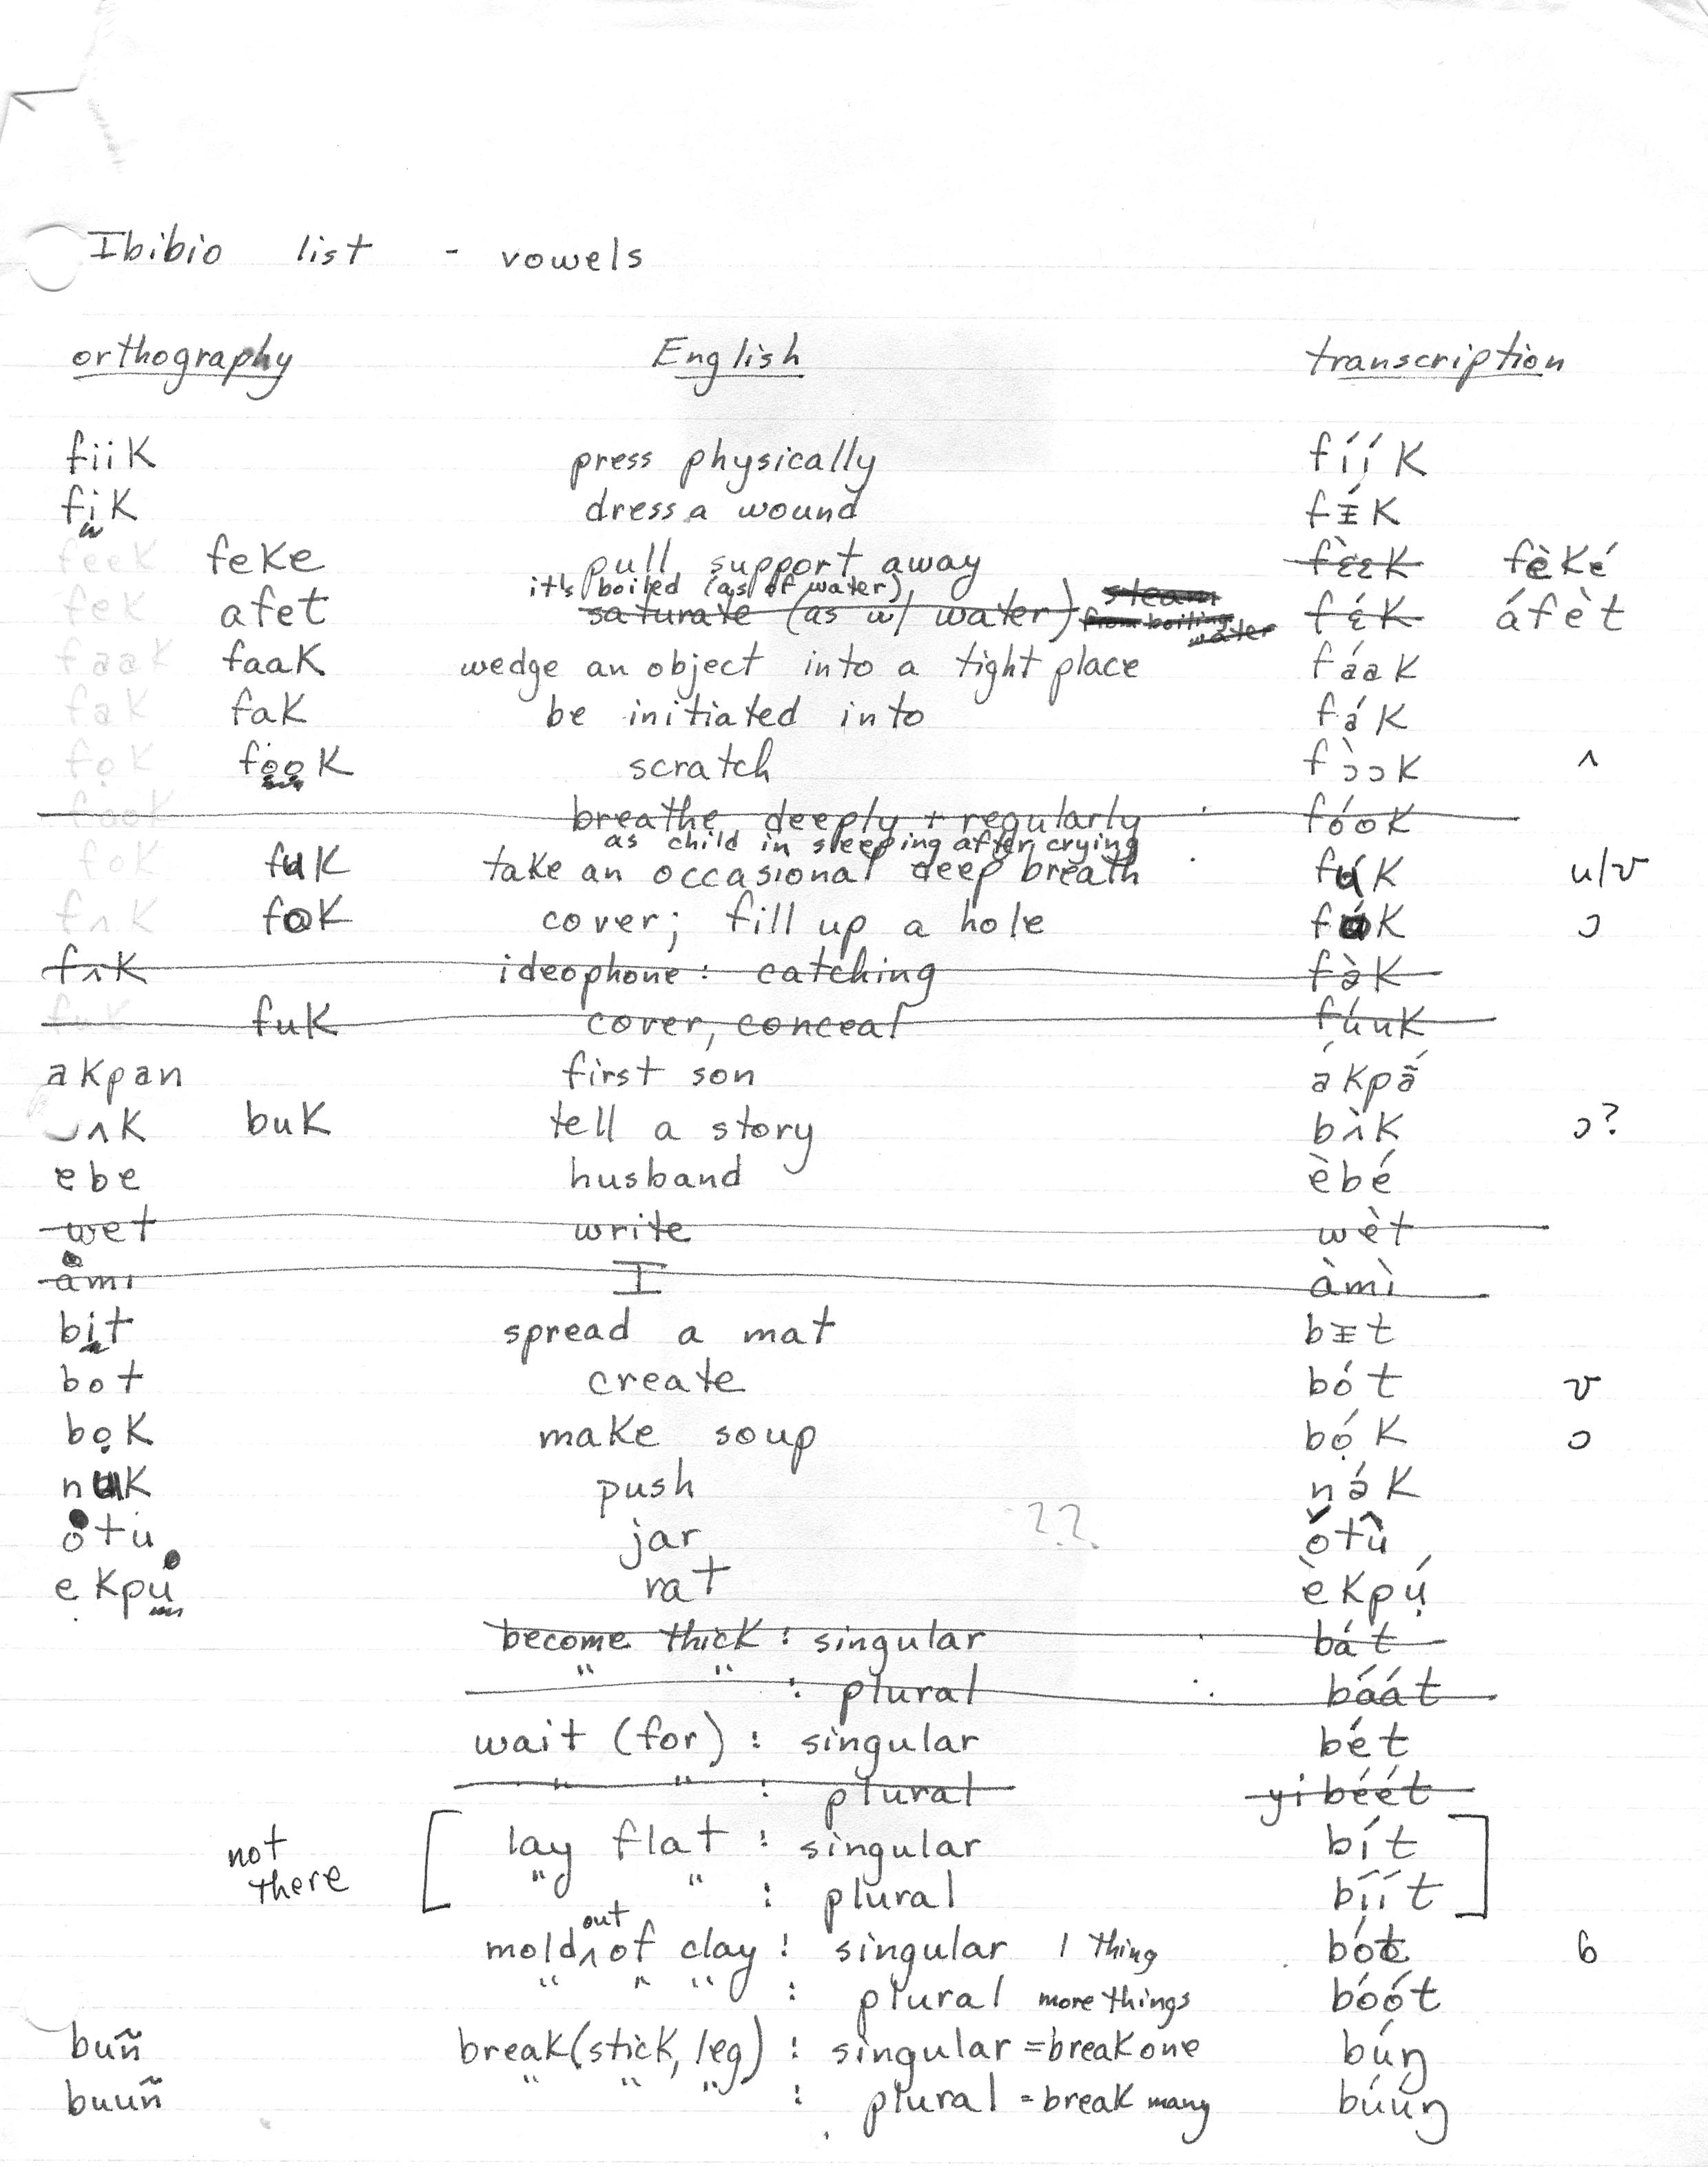 Ibibio list - vowels
orthography English transcription
fiik press physically fíík
fịk dress a wound fɪ́k
feek feke pull support away fɛ̀ɛk fèké
it's boiled (as of water)
fek afet saturate (as w/ water) steam from boiling water fɛ́k áfèt
faak faak wedge an object into a tight place fáak
fak fak be initiated into fák
fọk fọọk scratch fɔ̀ɔk ʌ
fook breathe deeply + regularly fóok
as child in sleeping after crying
fok fuk take an occasional deep breath fúk u/ʊ
fʌk fok cover; fill up a hole fák ɔ
fʌk ideophone: catching fə̀k
fuk fuk cover, conceal fúuk
akpan first son ákpã́
ʌk buk tell a story bʌ̀k ɔ?
ebe husband èbé
wet write wèt
ami I àmì
bịt spread a mat bɪt
bot create bót ʊ
bọk make soup bọ́k ɔ
nuk push nə́k
otu jar ǒtû
??
ekpụ rat èkpụ́
become thick : singular bát
" " : plural báát
wait (for) : singular bét
" " : plural yi béét
not there [ lay flat : singular bít ]
" " : plural bíít
mold out of clay : singular 1 thing bót 6
" " " : plural more things bóót
buñ break (stick, leg) : singular = break one búŋ
buuñ " " " : plural = break many búuŋ